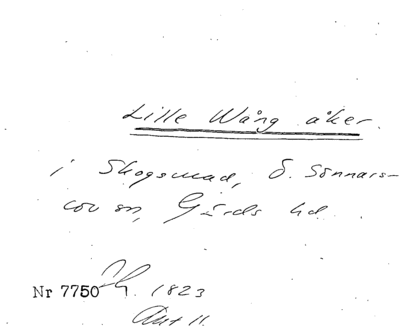 Lille Wång åker.
i Skogsmad, Ö. Sönnars-
lov sn, Gärds hd.
Nr 7750 1823
Akt 11.